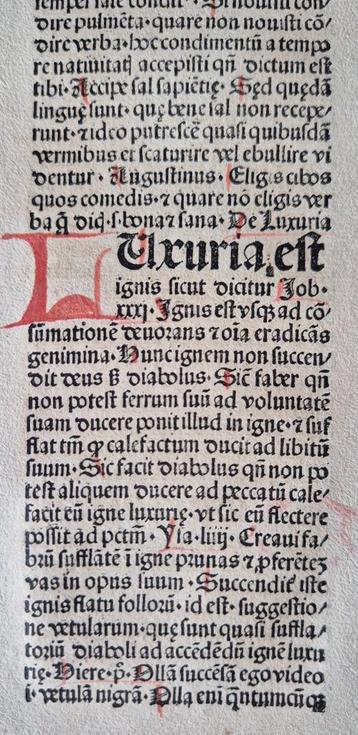 semper sale condit
dire pulmēta·quare non nouisti cō/
dire verba·hoc condimentū a tempo
re natiuitatꝭ accepisti qn̄ dictum est
tibi·Accipe sal sapiētię·Sęd quędā
linguę sunt·quę bene sal non recepe/
runt·⁊ ideo putrescē quasi quibusdā
vermibus et scaturire vel ebullire vi
dentur·Augustinus·Eligis cibos
quos comedis·⁊ quare nō eligis ver
ba q̄ dicis·s·bona ⁊ sana·De Luxuria
LUxuria est
ignis sicut dicitur Job·
xxxj·Ignis est vsqȝ ad cō/
sūmationē deuorans ⁊ oīa eradicās
genimina·Hunc ignem non succen/
dit deus ß diabolus·Sic faber qn̄
non potest ferrum suū ad voluntatē
suam ducere ponit illud in igne·⁊ suf
flat tm̄ ꝙ calefactum ducit ad libitū
suum·Sic facit diabolus qn̄ non po
test aliquem ducere ad peccatū cale/
facit eū igne luxurię·vt sic eū flectere
possit ad pctm̄·Ysa·liiij·Creaui fa/
brū sufflātē ī igne prunas ⁊ ꝓferēteȝ
vas in opus suum·Succendit̄ iste
ignis flatu follorū·id est·suggestio/
ne vetularum·quę sunt quasi suffla/
toriū diaboli ad accēdēdū ignē luxu
rię·Hiere·p̄·Ollā succēsā ego video
i·vetulā nigrā·Olla eni qntumcūqȝ